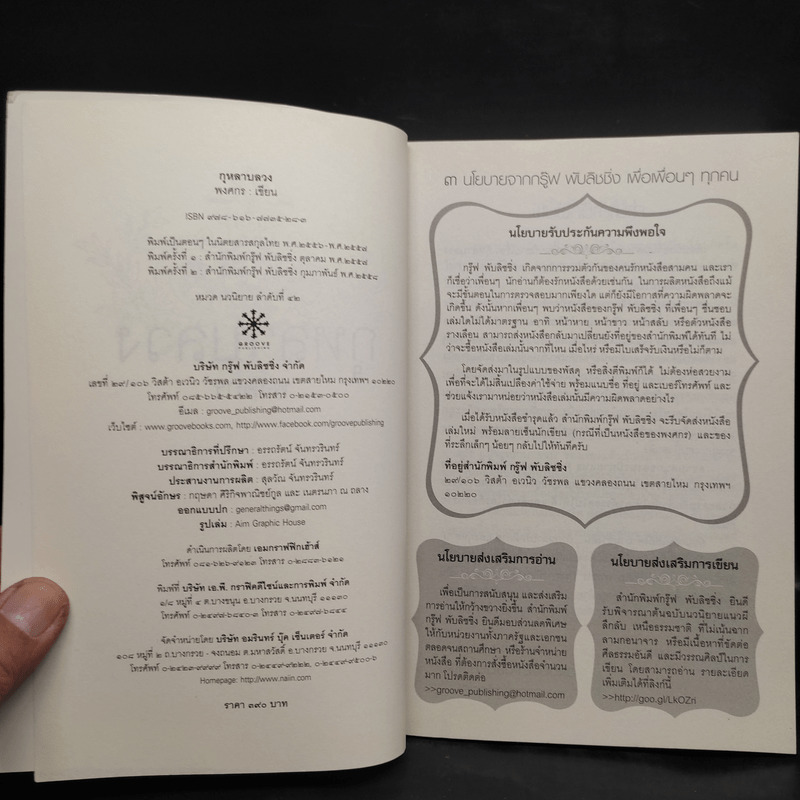 กุหลาบลวง
พงศกร : เขียน
ISBN ๙๗๘-๖๑๖-๗๗๓๕-๒๘-๓
พิมพ์เป็นตอนๆ ในนิตยสารสกุลไทย พ.ศ.๒๕๕๖-พ.ศ.๒๕๕๗
พิมพ์ครั้งที่ ๑ : สำนักพิมพ์กรู๊ฟ พับลิชชิ่ง ตุลาคม พ.ศ.๒๕๕๗
พิมพ์ครั้งที่ ๒ : สำนักพิมพ์กรู๊ฟ พับลิชชิ่ง กุมภาพันธ์ พ.ศ.๒๕๕๘
หมวด นวนิยาย ลำดับที่ ๔๒
GROOVE
PUBLISHING
บริษัท กรู๊ฟ พับลิชชิ่ง จำกัด
เลขที่ ๒๙/๑๐๖ วิสต้า อเวนิว วัชรพล แขวงคลองถนน เขตสายไหม กรุงเทพฯ ๑๐๒๒๐
โทรศัพท์ ๐๘๕-๖๖๕-๕๔๒๒ โทรสาร ๐-๒๑๕๓-๐๕๐๐
อีเมล : groove_publishing@hotmail.com
เว็บไซต์ : www.groovebooks.com, http://www.facebook.com/groovepublishing
บรรณาธิการที่ปรึกษา : อรรถรัตน์ จันทรวรินทร์
บรรณาธิการสำนักพิมพ์ : อรรถรัตน์ จันทรวรินทร์
ประสานงานการผลิต : สุลวัณ จันทรวรินทร์
พิสูจน์อักษร : กฤษดา ศิริกิจพาณิชย์กูล และ เนตรนภา ณ ถลาง
ออกแบบปก : generalthings@gmail.com
รูปเล่ม : Aim Graphic House
ดำเนินการผลิตโดย เอมกราฟฟิกเฮ้าส์
โทรศัพท์ ๐๘๑-๖๒๖-๙๑๒๓ โทรสาร ๐-๒๘๘๓-๖๑๒๑
พิมพ์ที่ บริษัท เอ.พี. กราฟิคดีไซน์และการพิมพ์ จำกัด
๑/๘ หมู่ที่ ๔ ต.บางขนุน อ.บางกรวย จ.นนทบุรี ๑๑๑๓๐
โทรศัพท์ ๐-๒๔๙๗-๖๘๔๐-๓ โทรสาร ๐-๒๔๙๗-๖๘๔๔
จัดจำหน่ายโดย บริษัท อมรินทร์ บุ๊ค เซ็นเตอร์ จำกัด
๑๐๘ หมู่ที่ ๒ ถ.บางกรวย - จงถนอม ต.มหาสวัสดิ์ อ.บางกรวย จ.นนทบุรี ๑๑๑๓๐
โทรศัพท์ ๐-๒๔๒๓-๙๙๙๙ โทรสาร ๐-๒๔๔๙-๙๒๒๒, ๐-๒๔๔๙-๙๕๐๐-๖
Homepage: http://www.naiin.com
ราคา ๓๙๐ บาท
๓ นโยบายจากกรู๊ฟ พับลิชชิ่ง เพื่อเพื่อนๆ ทุกคน
นโยบายรับประกันความพึงพอใจ
กรู๊ฟ พับลิชชิ่ง เกิดจากการรวมตัวกันของคนรักหนังสือสามคน และเรา
ก็เชื่อว่าเพื่อนๆ นักอ่านก็ต้องรักหนังสือด้วยเช่นกัน ในการผลิตหนังสือถึงแม้
จะมีขั้นตอนในการตรวจสอบมากเพียงใด แต่ก็ยังมีโอกาสที่ความผิดพลาดจะ
เกิดขึ้น ดังนั้นหากเพื่อนๆ พบว่าหนังสือของกรู๊ฟ พับลิชชิ่ง ที่เพื่อนๆ ชื่นชอบ
เล่มใดไม่ได้มาตรฐาน อาทิ หน้าหาย หน้าขาว หน้าสลับ หรือตัวหนังสือ
รางเลือน สามารถส่งหนังสือกลับมาเปลี่ยนยังที่อยู่ของสำนักพิมพ์ได้ทันที ไม่
ว่าจะซื้อหนังสือเล่มนั้นจากที่ไหน เมื่อไหร่ หรือมีใบเสร็จรับเงินหรือไม่ก็ตาม
โดยจัดส่งมาในรูปแบบของพัสดุ หรือสิ่งตีพิมพ์ก็ได้ ไม่ต้องห่อสวยงาม
เพื่อที่จะได้ไม่สิ้นเปลืองค่าใช้จ่าย พร้อมแนบชื่อ ที่อยู่ และเบอร์โทรศัพท์ และ
ช่วยแจ้งเรามาหน่อยว่าหนังสือเล่มนั้นมีความผิดพลาดอย่างไร
เมื่อได้รับหนังสือชำรุดแล้ว สำนักพิมพ์กรู๊ฟ พับลิชชิ่ง จะรีบจัดส่งหนังสือ
เล่มใหม่ พร้อมลายเซ็นนักเขียน (กรณีที่เป็นหนังสือของพงศกร) และของ
ที่ระลึกเล็กๆ น้อยๆ กลับไปให้ทันทีครับ
ที่อยู่สำนักพิมพ์ กรู๊ฟ พับลิชชิ่ง
๒๙/๑๐๖ วิสต้า อเวนิว วัชรพล แขวงคลองถนน เขตสายไหม กรุงเทพฯ
๑๐๒๒๐
นโยบายส่งเสริมการอ่าน
เพื่อเป็นการสนับสนุน และส่งเสริม
การอ่านให้กว้างขวางยิ่งขึ้น สำนักพิมพ์
กรู๊ฟ พับลิชชิ่ง ยินดีมอบส่วนลดพิเศษ
ให้กับหน่วยงานทั้งภาครัฐและเอกชน
ตลอดจนสถานศึกษา หรือร้านจำหน่าย
หนังสือ ที่ต้องการสั่งซื้อหนังสือจำนวน
มาก โปรดติดต่อ
>>groove_publishing@hotmail.com
นโยบายส่งเสริมการเขียน
สำนักพิมพ์กรู๊ฟ พับลิชชิ่ง ยินดี
รับพิจารณาต้นฉบับนวนิยายแนวผี
ลึกลับ เหนือธรรมชาติ ที่ไม่เน้นฉาก
ลามกอนาจาร หรือมีเนื้อหาที่ขัดต่อ
ศีลธรรมอันดี และมีวรรณศิลป์ในการ
เขียน โดยสามารถอ่าน รายละเอียด
เพิ่มเติมได้ที่ลิงก์นี้
>>http://goo.gl/LkOZri